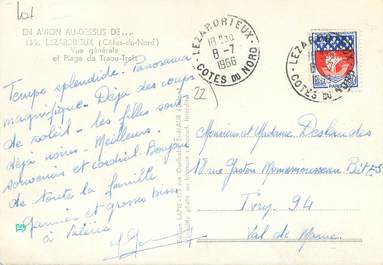 lot
EN AVION AU-DESSUS DE...
LEZARDRIEUX (Côtes-du-Nord)
Vue générale
et Plage de Traou-Treiz
LEZARDRIEUX
8-7
1966
COTES DU NORD
LEZARDRIEUX
COTES DU NORD
PARIS
22
Temps splendide. Panorama
magnifique. Déjà des coups
de soleil - les filles sont
déjà noires - Meilleurs
souvenirs et cordial Bonjour
de toute la famille
Garnier et grosses bises
à Valérie
Monsieur et Madame Deslandes
18 rue Gaston Monmousseau Bât E5
Ivry 94
Val de Marne